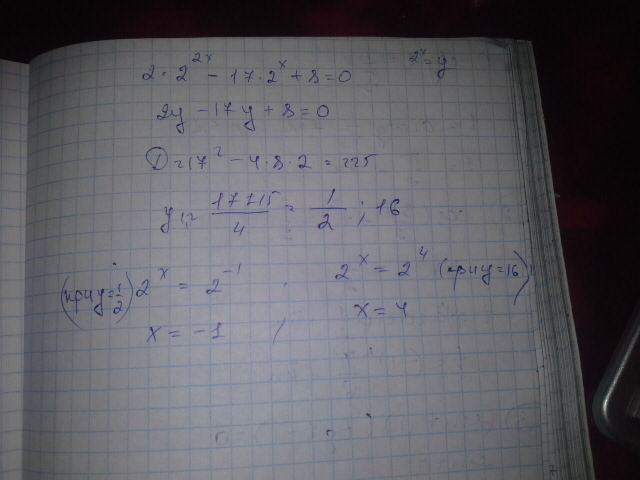 2 · 2^{2x} - 17 · 2^x + 8 = 0    2^x = y
2y - 17y + 8 = 0
D = 17^2 - 4 · 8 · 2 = 225
y_{1,2} = \frac{17±15}{4} = \frac{1}{2} ; 16
(при y = \frac{1}{2}) 2^x = 2^{-1} , 2^x = 2^4 (при y = 16)
x = -1 / x = 4